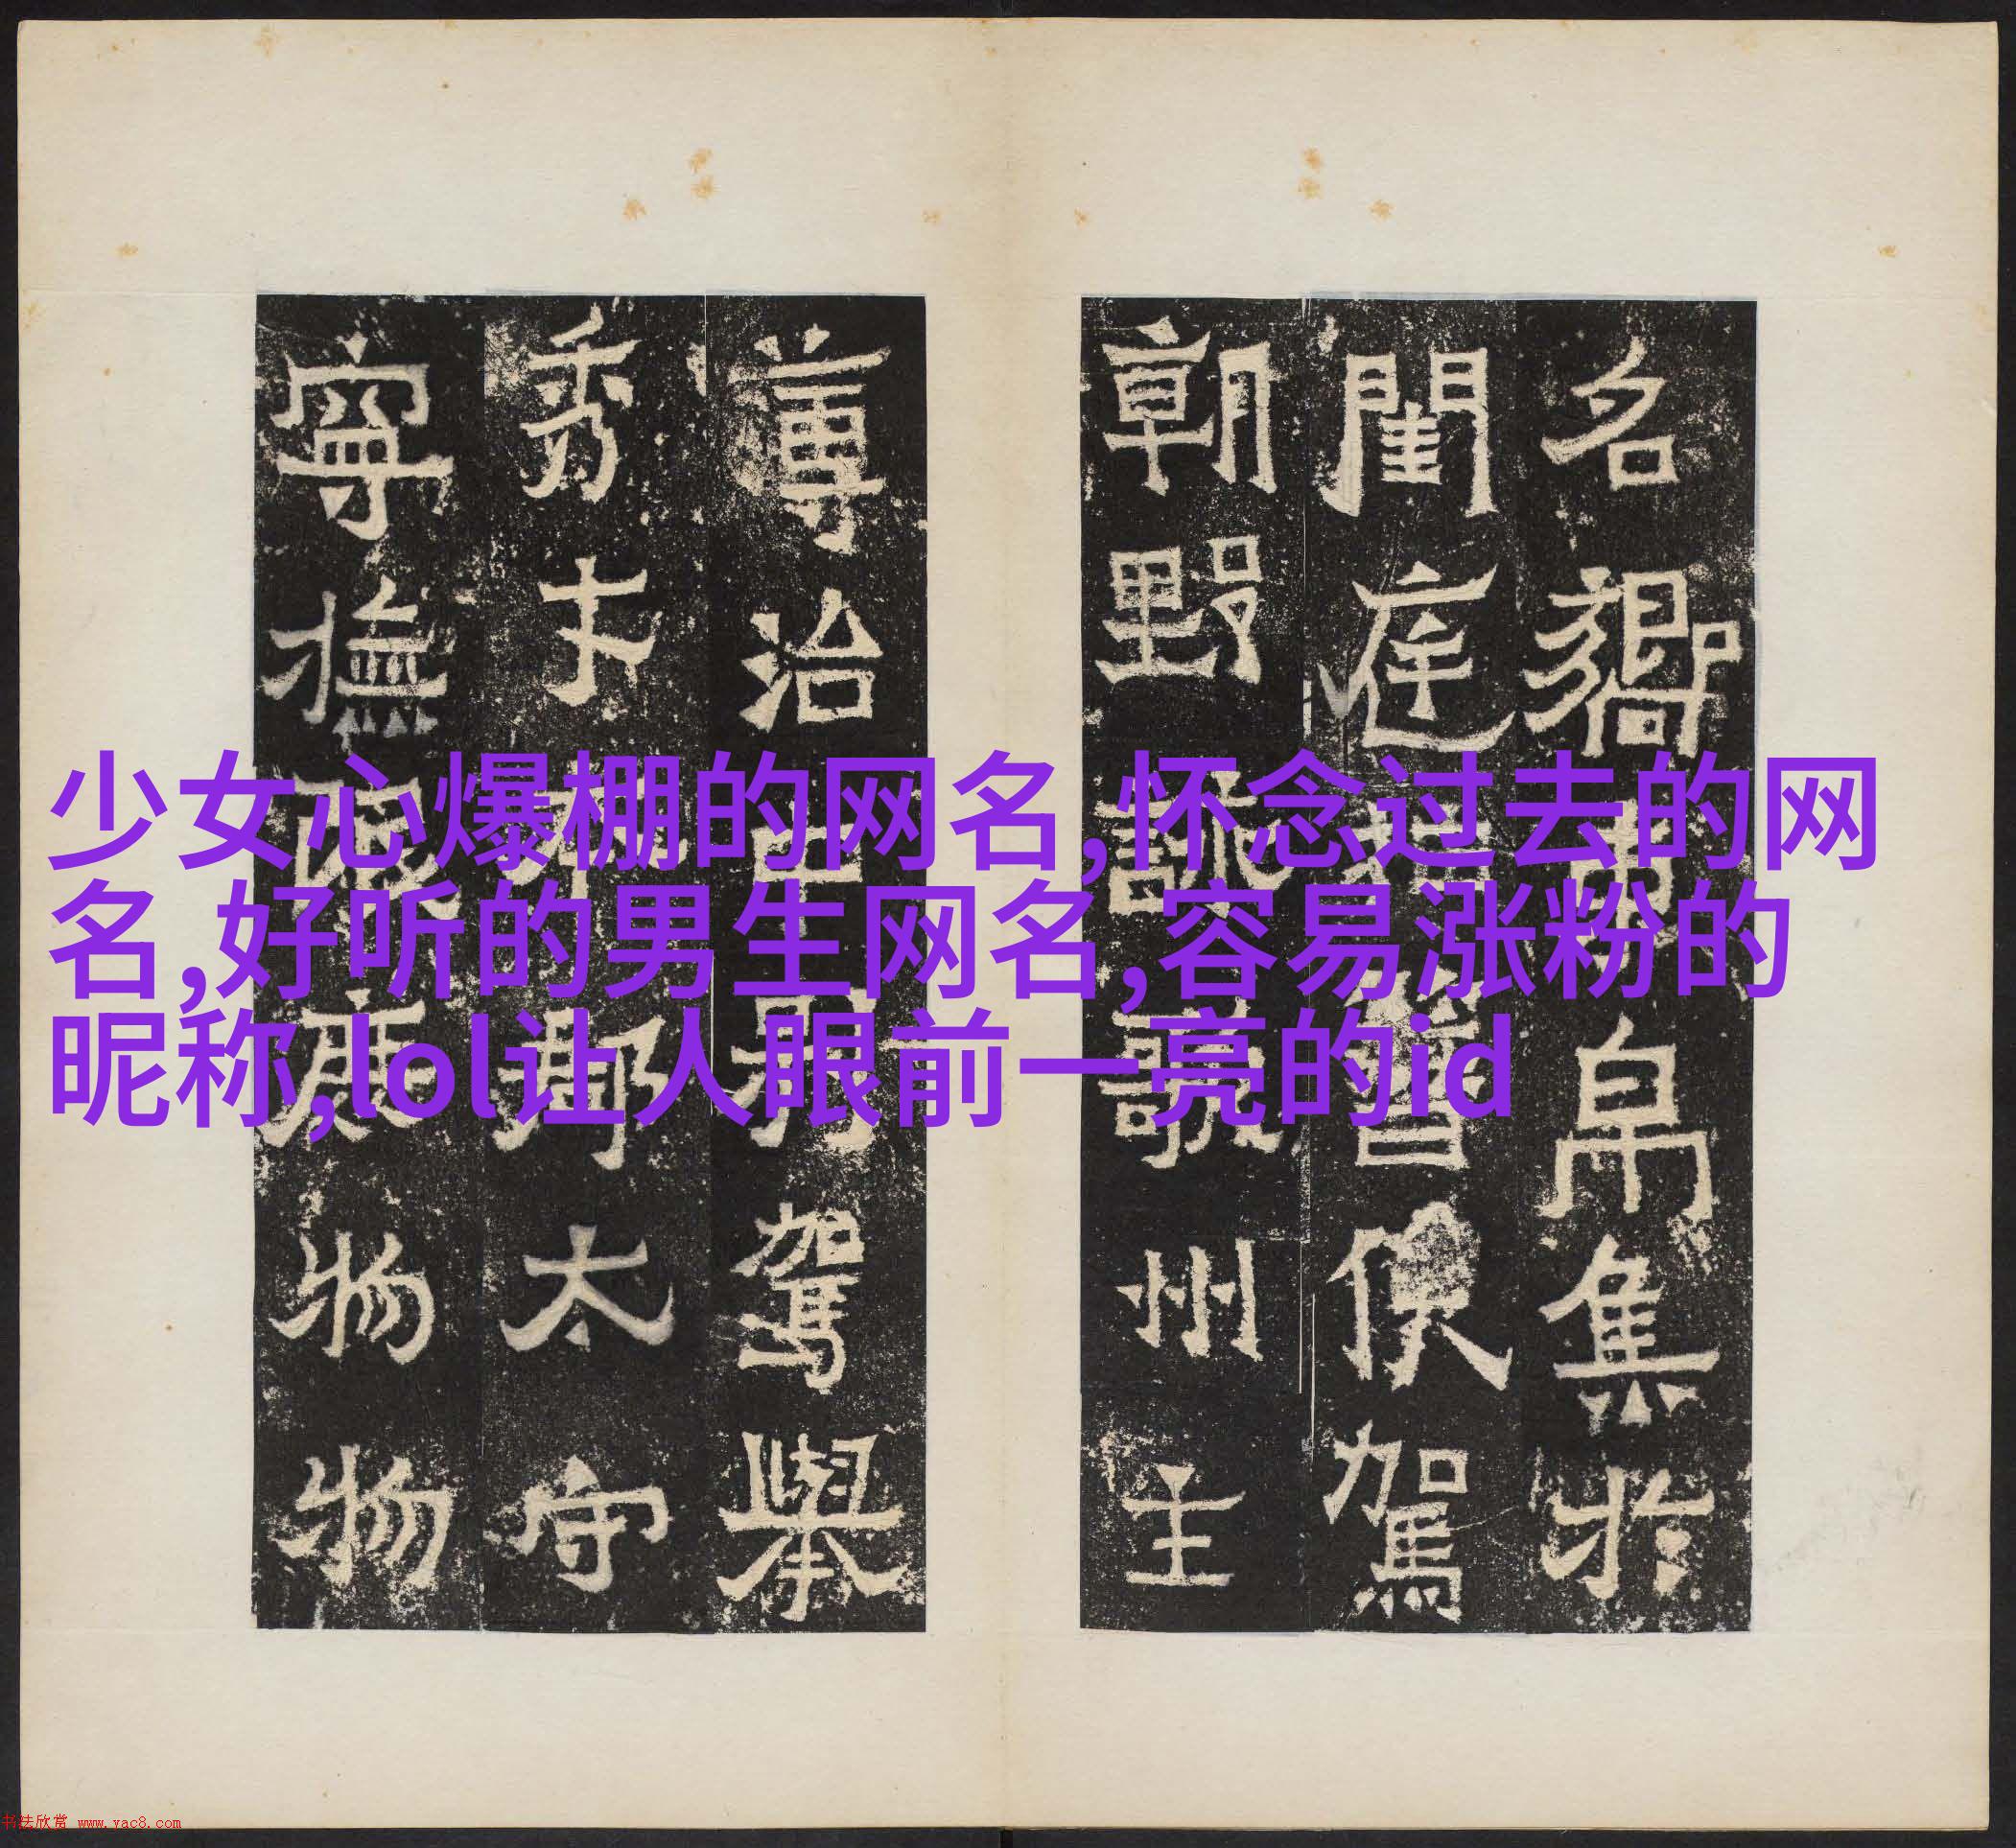 少女心爆棚的网名,怀念过去的网
名,好听的男生网名,容易涨粉的
昵称,lol让人眼前一亮的id
名帛集於
閨庭譽駕
朝野詠歌州主
導治別駕舉
秀才郡太守
寧撫物物
书法欣赏 www.yac8.com